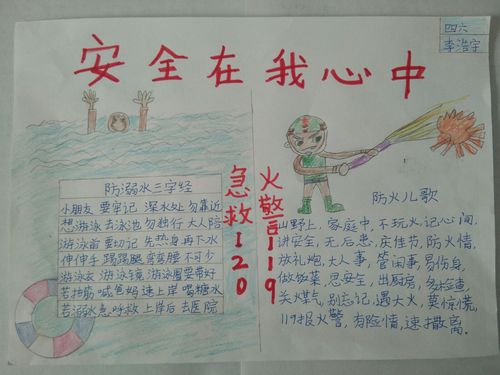 安全在我心中
四六
李浩宇
防溺水三字经
小朋友 要牢记 深水处 勿靠近
想游泳 去泳池 勿独行 大人陪
游泳前 要切记 先热身 再下水
伸伸手 踢踢腿 弯弯腰 不可少
游泳衣 游泳镜 游泳圈 要带好
若抽筋 喊爸妈 速上岸 喝糖水
若溺水 急呼救 上岸后 去医院
急救120
火警119
防火儿歌
山野上,家庭中,不玩火,记心间,
讲安全,无后患,庆佳节,防火情,
放礼炮,大人事,管闲事,易伤身,
做饭菜,思安全,出厨房,多检查,
关煤气,别忘记,遇大火,莫惊慌,
119报火警,有险情,速撤离.